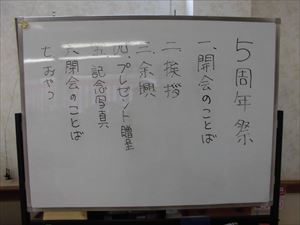 5周年祭
一、開会のことば
二、挨拶
三、余興
四、プレゼント贈呈
五、記念写真
六、閉会のことば
七、おやつ